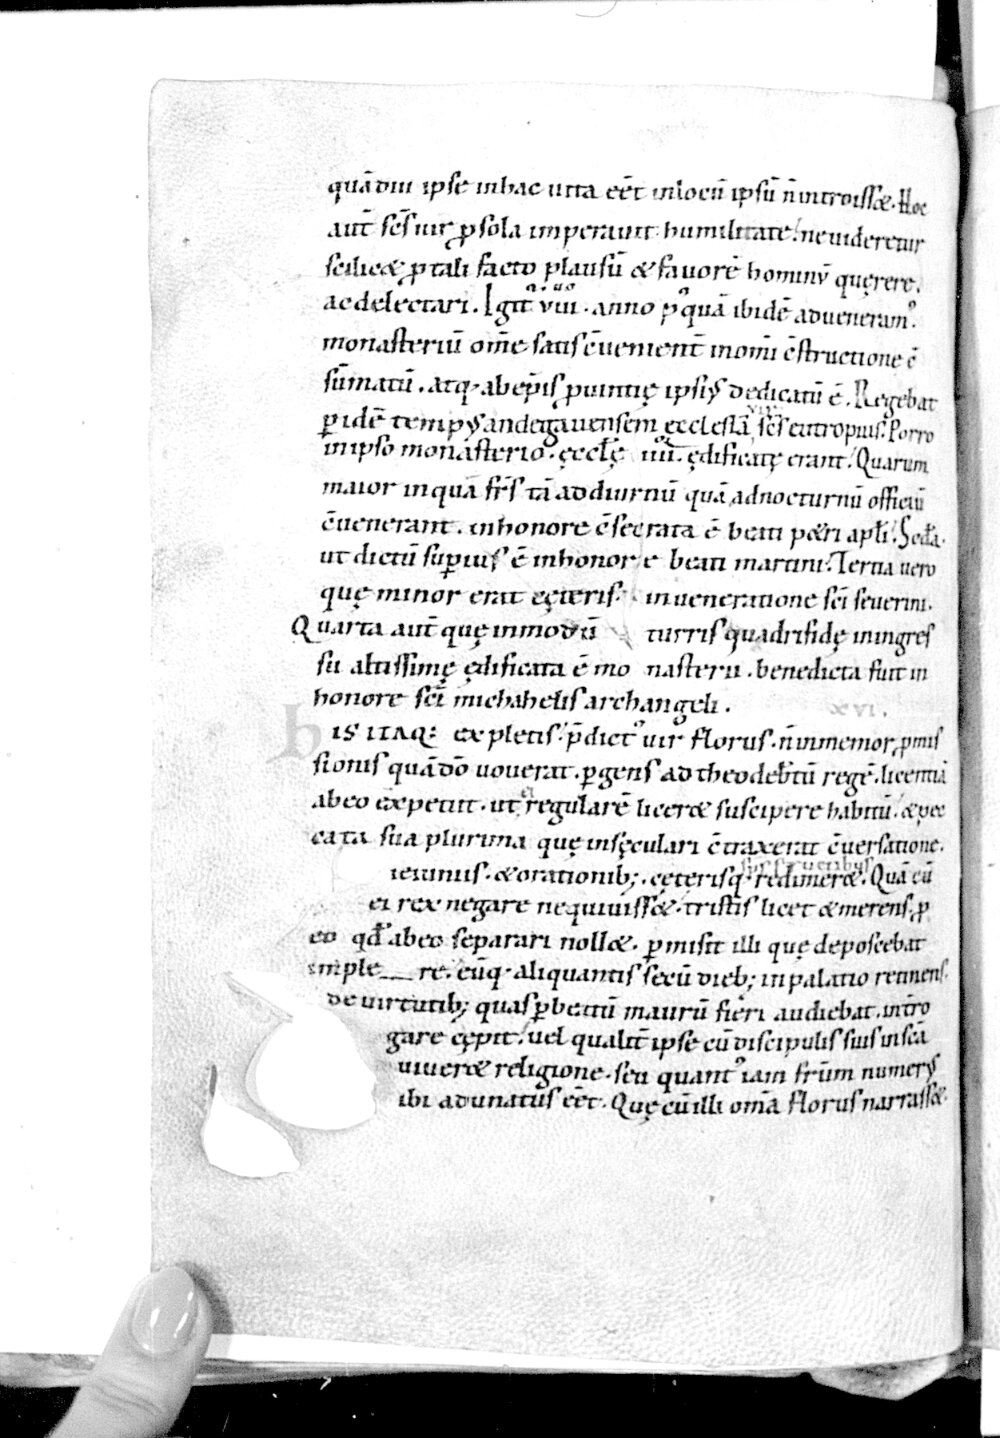 quā diu ipse in hac uita eēt in locū ipsū n̄ introissæ. Hoc
aūt sc̄s uir ꝓ sola imperauit humilitate. ne uideretur
scilicæ ꝓ tali facto plausū & fauorē hominū quęrere.
ac delectari. Igit̄ VIIII. anno pꝰquā ibidē adueneramꝰ.
monasteriū om̄e satis c̄uenient̄ in om̄i c̄structione c̄
sūmatū. atq; ab ep̄is ꝓuintię ipsiꝰ dedicatū ē. Regebat
ꝑ idē tempꝰ andegauensem ęcclesiā uir sc̄s eutropius. Porro
in ipso monasterio. ęccłę IIIIᵒʳ. ędificatę erant. Quarum
maior in qua fr̄s tā ad diurnū quā ad nocturnū officiū
c̄uenerant. in honore c̄secrata ē beati pætri apłi. Scđa.
ut dictū suꝑius ē in honore beati martini. Tertia uero
quę minor erat cęteris. in ueneratione sc̄i seuerini.
Quarta aūt quę in modū turris quadrifidę in ingres
su altissimę ędificata ē mo nasterii. benedicta fuit in
honore sc̄i michahelis archangeli.
XVI.
his itaq; expletis. p̄dictꝰ uir florus. n̄ inmemor ꝓmis
sionis quā dō uouerat. ꝑgens ad theodeb̄tū regē. licentiā
ab eo expetiit. ut ei regularē liceræ suscipere habitū. & pec
cata sua plurima quę in sęculari c̄traxerat c̄uersatione.
ieiuniis. & orationib; cęterisq; sp̄s fructibus redimeræ. Quā cū
ei rex negare nequiuissæ. tristis licet & merens. ꝓ
eo qđ ab eo separari nollæ. ꝑmisit illi quę deposcebat
imple__re. eūq; aliquantis secū dieb; in palatio retinens.
de uirtutib; quas ꝑ beatū maurū fieri audiebat. intro
gare cępit. uel qualit̄ ipse cū discipulis suis in sc̄a
uiueræ religione. seu quantꝰ iam fr̄um numerꝰ
ibi adunatus eēt. Quę cū illi om̄a florus narrassæ.